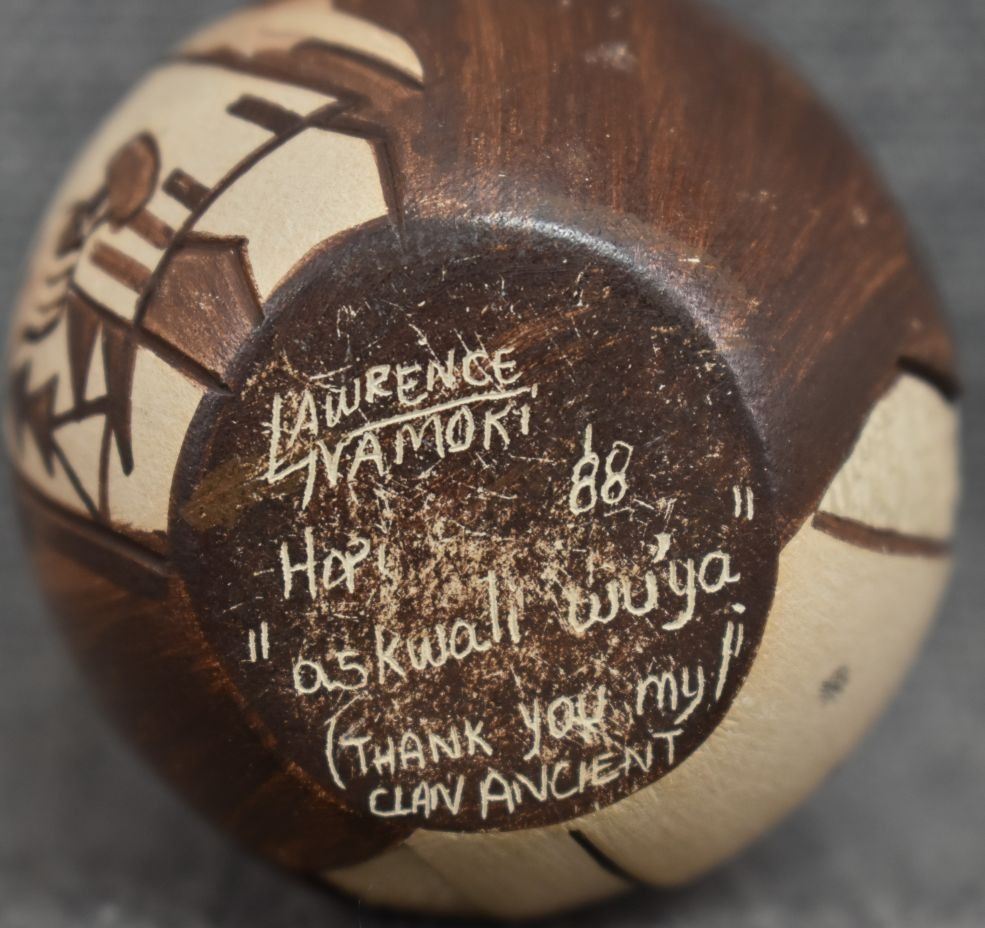 LAWRENCE
NAMOKI
'88
Hopi
"askwali wu'ya"
(THANK you my
CLAN ANCIENT